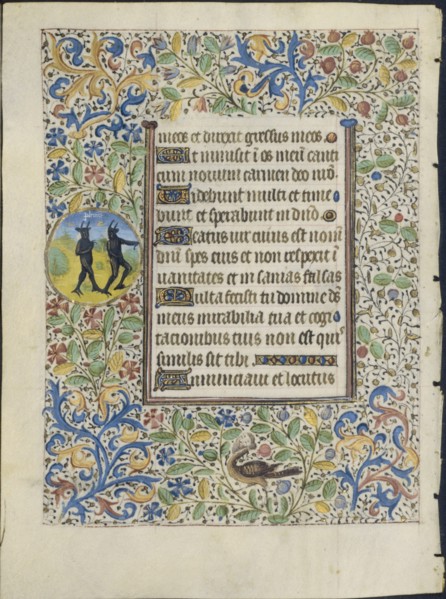 meos et direxit gressus meos.
Et inmisit i os meu canti
cum novum carmen deo nro.
Videbunt multi et time
bunt et sperabunt in dno
Beatus vir cuius est nome
dni spes eius et non respexit i
vanitates et in sanias falsas
Multa fecisti tu domine ds
meus mirabilia tua et cogi
tacionibus tuis non est qui
similis sit tibi.
Annunciavi et locutus